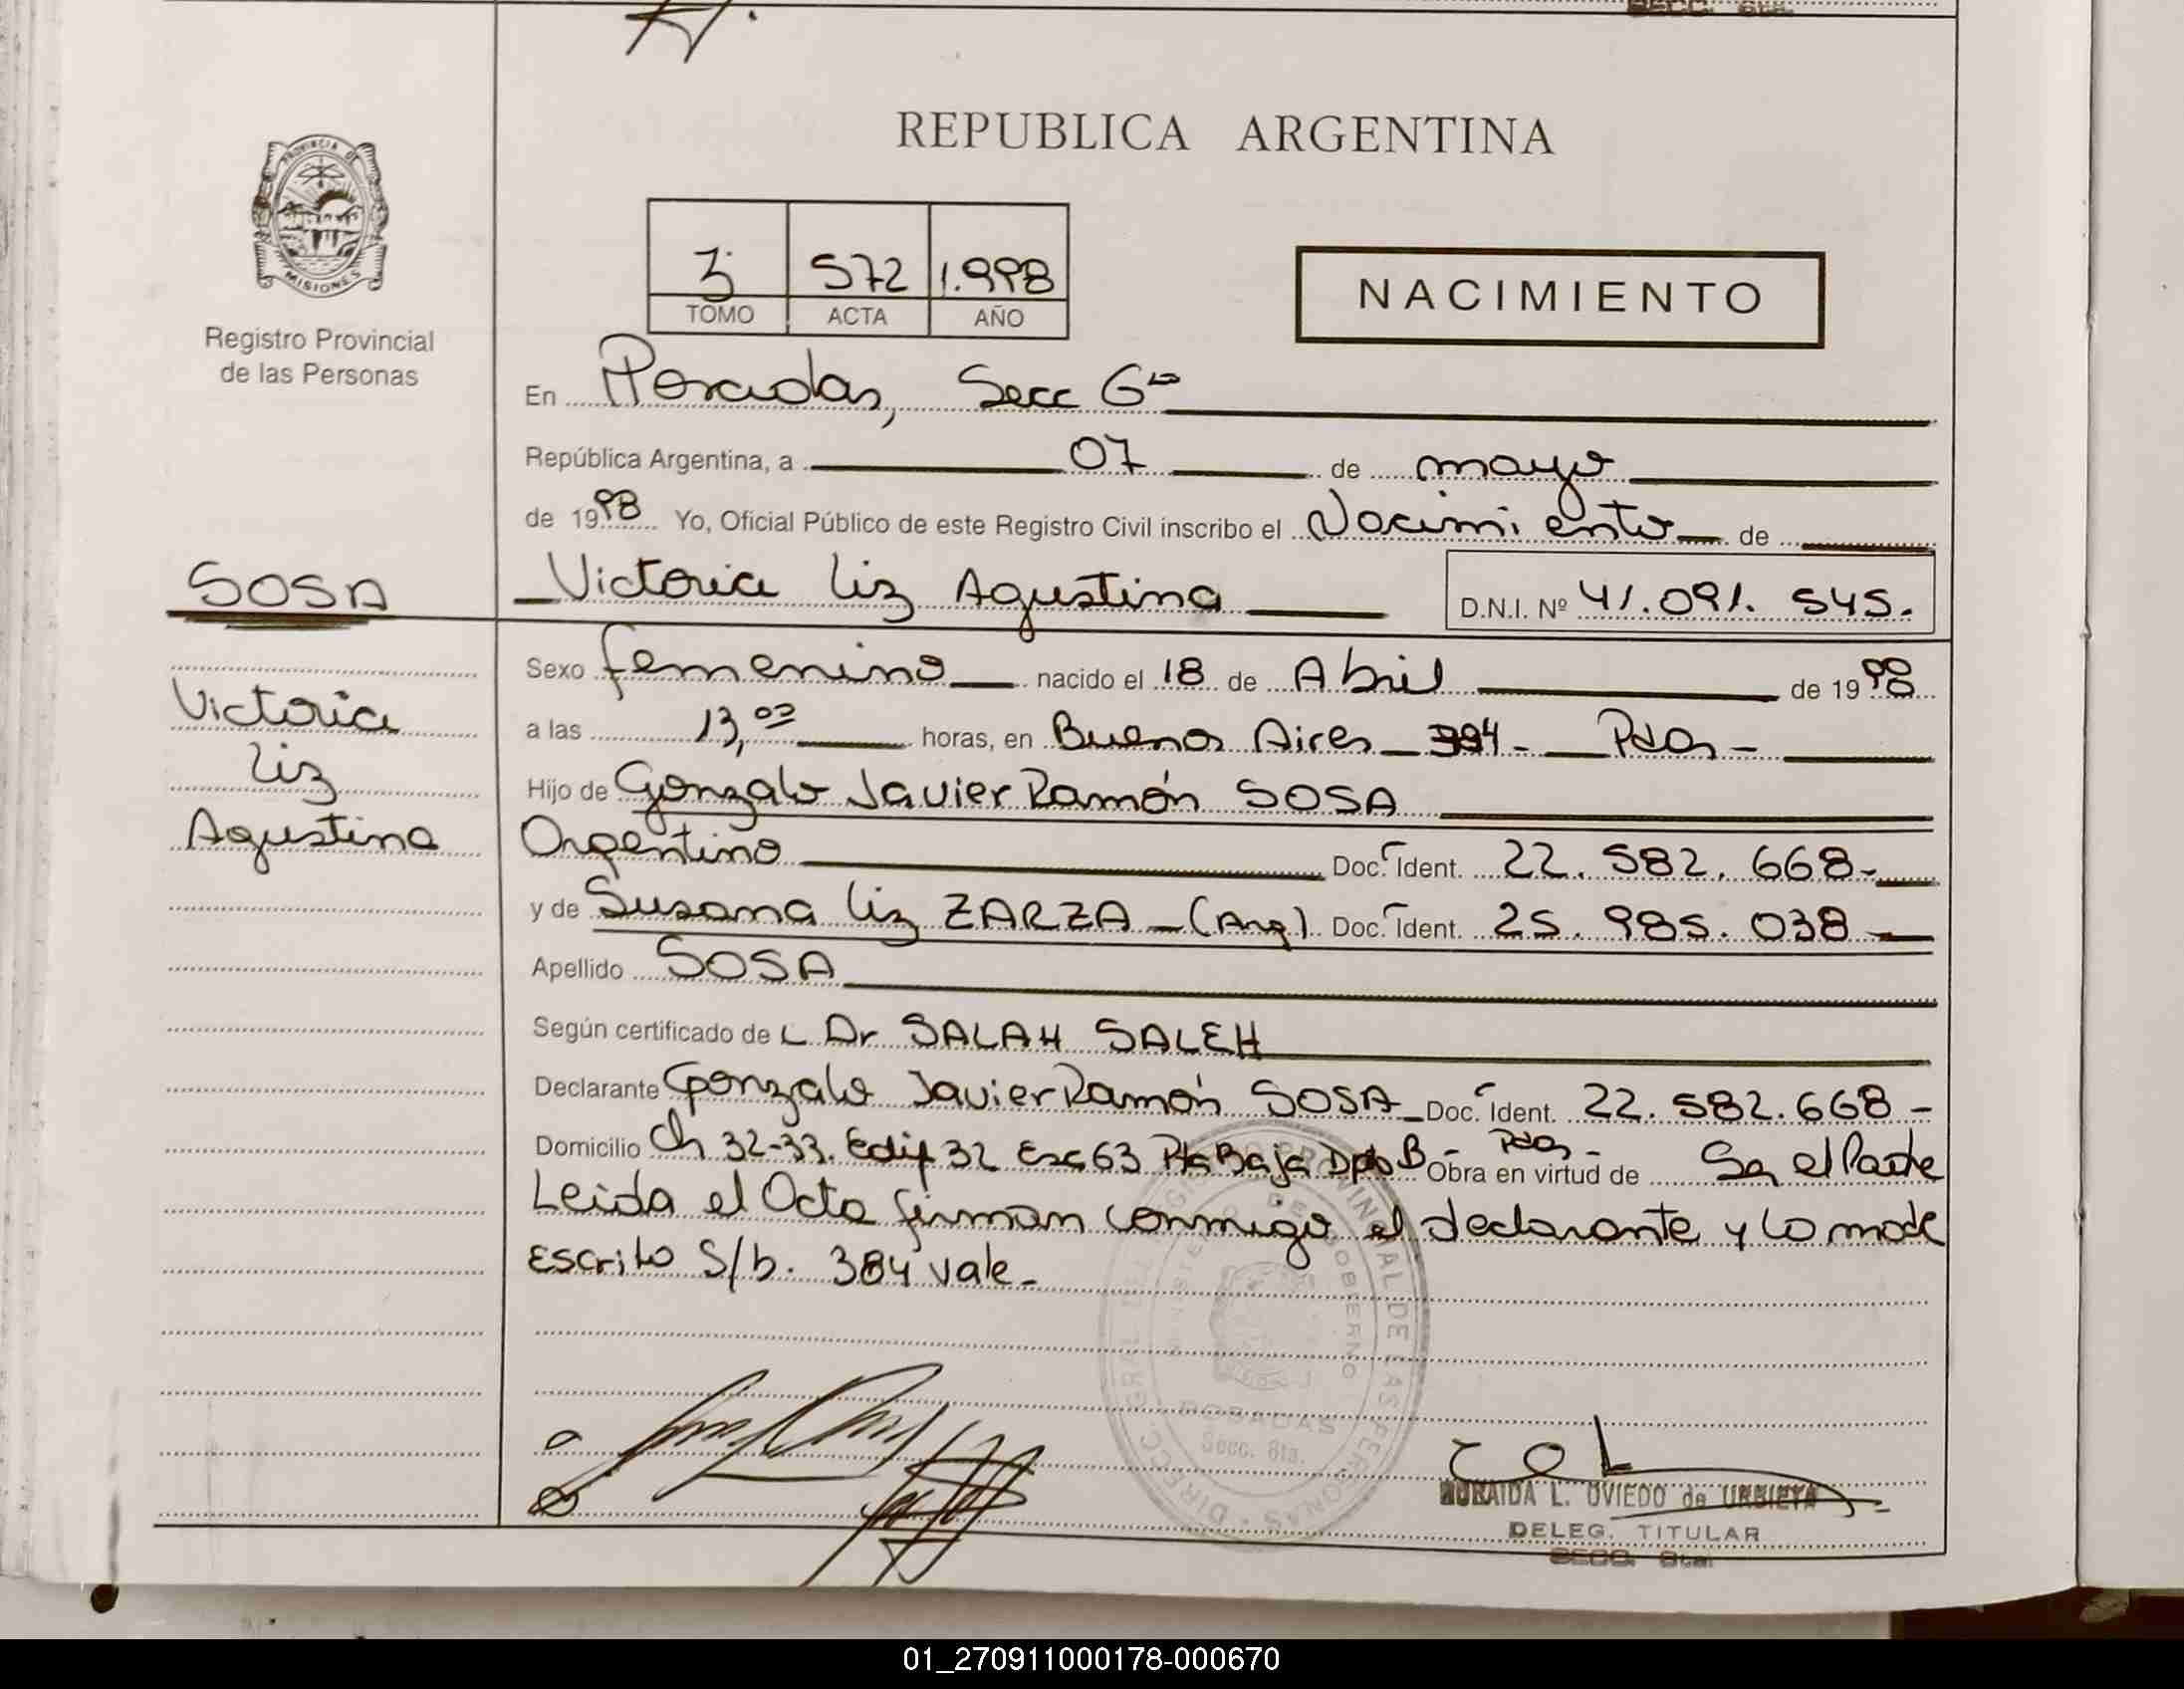 SECC. 6ta.
REPUBLICA ARGENTINA
PROVINCIA DE
MISIONES
Registro Provincial
de las Personas
3 572 1.998
TOMO ACTA AÑO
NACIMIENTO
En Posadas, Secc 6ta
República Argentina, a 07 de mayo
de 1998 Yo, Oficial Público de este Registro Civil inscribo el Nacimiento de
SOSA
Victoria Liz Agustina D.N.I. Nº 41.091.545.
Victoria
Liz
Agustina
Sexo femenino nacido el 18 de Abril de 1998
a las 13,00 horas, en Buenos Aires 384 - Pdas -
Hijo de Gonzalo Javier Ramón SOSA
Argentino Doc. Ident. 22.582.668-
y de Susana Liz ZARZA - (Arg) Doc. Ident. 25.985.038
Apellido SOSA
Según certificado de L Dr SALAH SALEH
Declarante Gonzalo Javier Ramón SOSA Doc. Ident. 22.582.668-
Domicilio Ch 32-33. Edif 32 Esc 63 Pta Baja Dpto B - Pdas - Obra en virtud de Ser el Padre
Leida el Acta firman conmigo el declarante y la madre
Escrito S/b. 384 vale -
DIRECC. GRAL. DEL REGISTRO PROVINCIAL DE LAS PERSONAS
MINISTERIO DE GOBIERNO
POSADAS
Secc. 6ta.
MURAIDA L. OVIEDO de URBIETA
DELEG. TITULAR
SECC. 6ta.
01_270911000178-000670